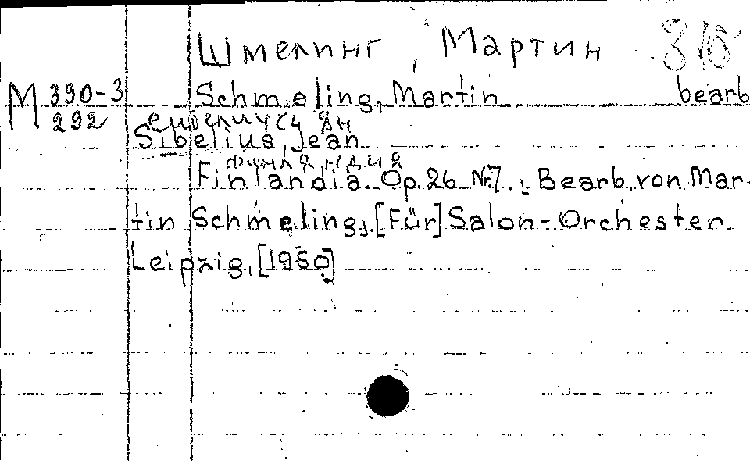 Шмелинг, Мартин
M 390-3 Schmeling, Martin bearb
292 Сибелиус, Ян
Sibelius, Jean
Финляндия
Finlandia. Op. 26 Nr7. Bearb. von Mar-
tin Schmeling, [Für] Salon-Orchester.
Leipzig, [1950]